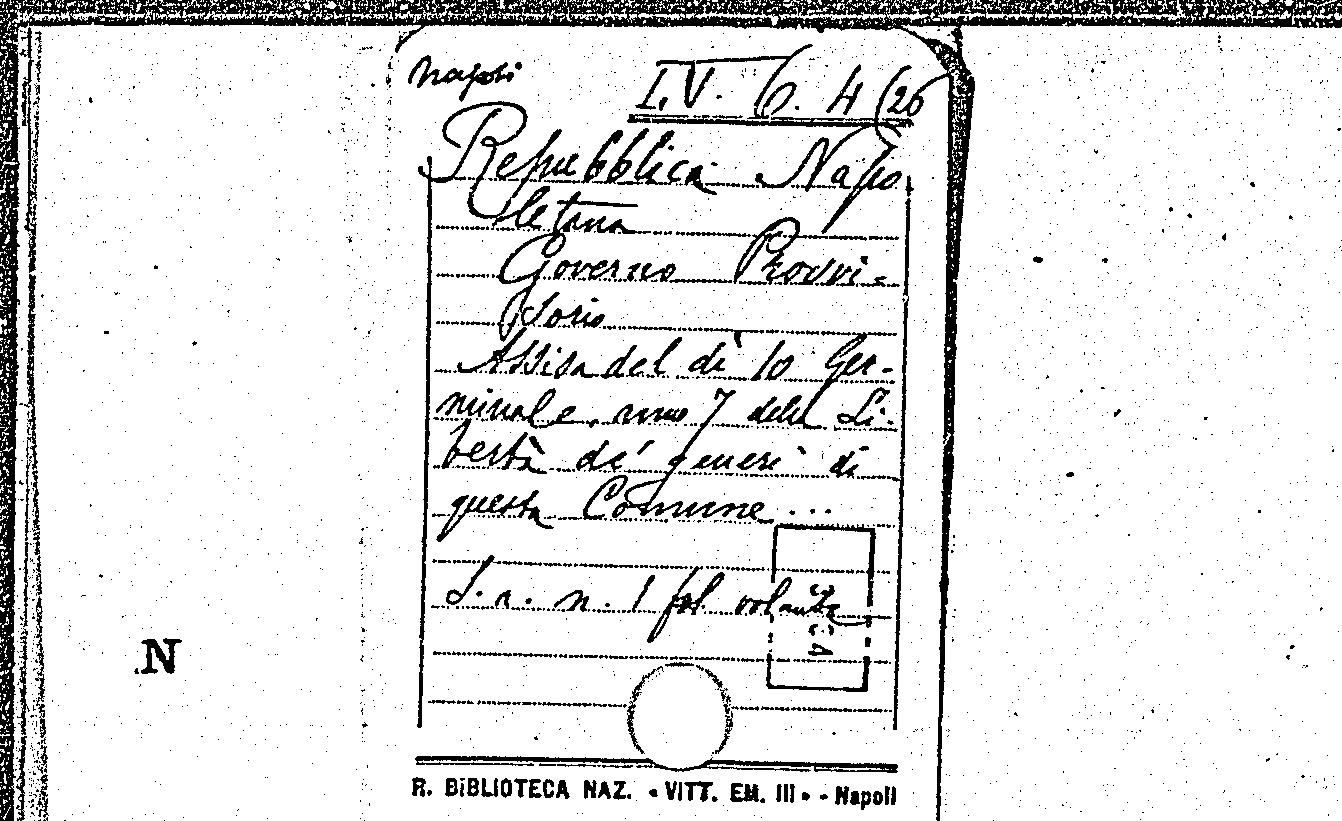 Napoli
I.V. 6. 4 (26
Repubblica Napo
letana
Governo Provvi-
sorio
Assisa del dì 10 Ger-
minale, anno 7 della Li-
bertà de' generi di
questa Comune ...
S. n. n. 1 fol. volante
N
R. BIBLIOTECA NAZ. « VITT. EM. III » - Napoli